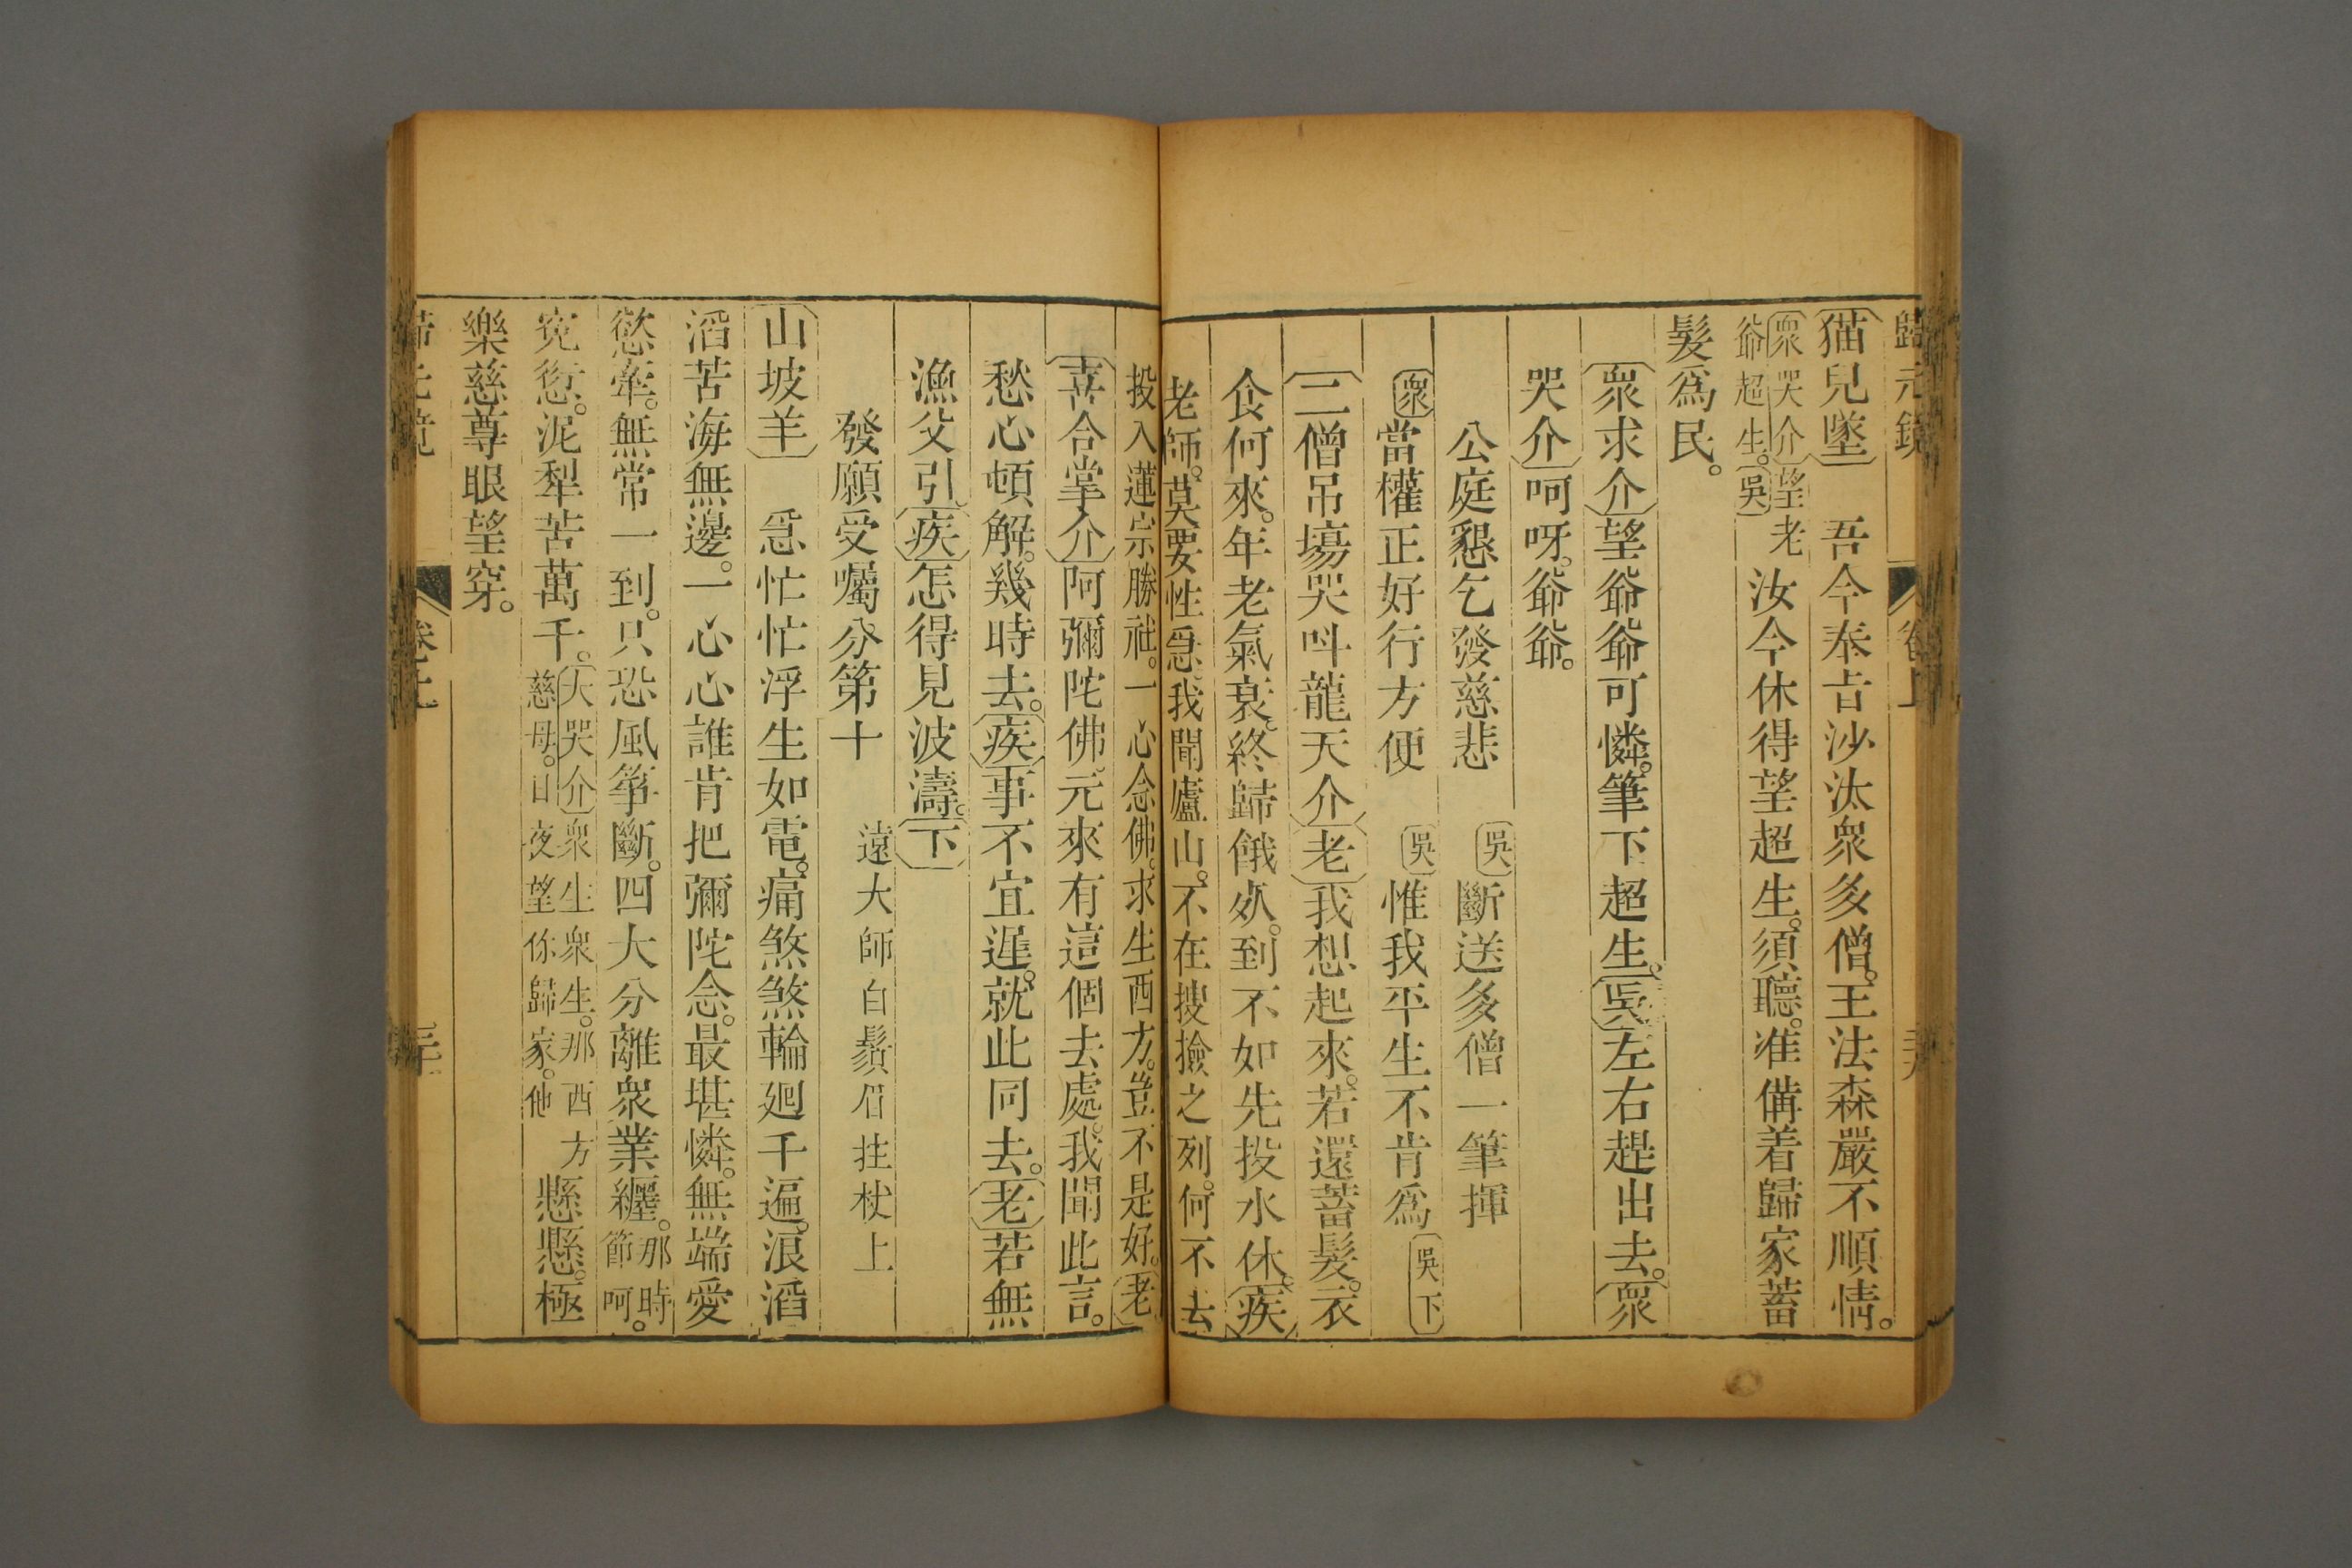 歸元鏡 卷上
〔猫兒墜〕吾今奉旨沙汰衆多僧。王法森嚴不順情。
〔衆哭介〕望老爺超生。〔吳〕汝今休得望超生。須聽。准備着歸家蓄
髮爲民。
〔衆求介〕望爺爺可憐。筆下超生。〔吳〕左右趕出去。〔衆
哭介〕呵呀。爺爺。
公庭懇乞發慈悲 〔吳〕斷送多僧一筆揮
〔衆〕當權正好行方便 〔吳〕惟我平生不肯爲〔吳下〕
〔二僧吊場哭呌龍天介〕〔老〕我想起來。若還蓄髮。衣
食何來。年老氣衰。終歸餓死。到不如先投水休。〔疾〕
老師。莫要性急。我聞廬山。不在搜撿之列。何不去
投入蓮宗勝社。一心念佛。求生西方。豈不是好。〔老
喜合掌介〕阿彌陀佛。元來有這個去處。我聞此言。
愁心頓解。幾時去。〔疾〕事不宜遲。就此同去。〔老〕若無
漁父引。〔疾〕怎得見波濤。〔下〕
發願受囑分第十 遠大師白鬚眉拄杖上
〔山坡羊〕急忙忙浮生如電。痛煞煞輪廻千遍。浪滔
滔苦海無邊。一心心誰肯把彌陀念。最堪憐。無端愛
慾牽。無常一到。只恐風筝斷。四大分離衆業纒。那時節呵。
寃愆。泥犁苦萬千。〔大哭介〕衆生衆生。那西方慈母。日夜望你歸家。他懸懸。極
樂慈尊眼望穿。